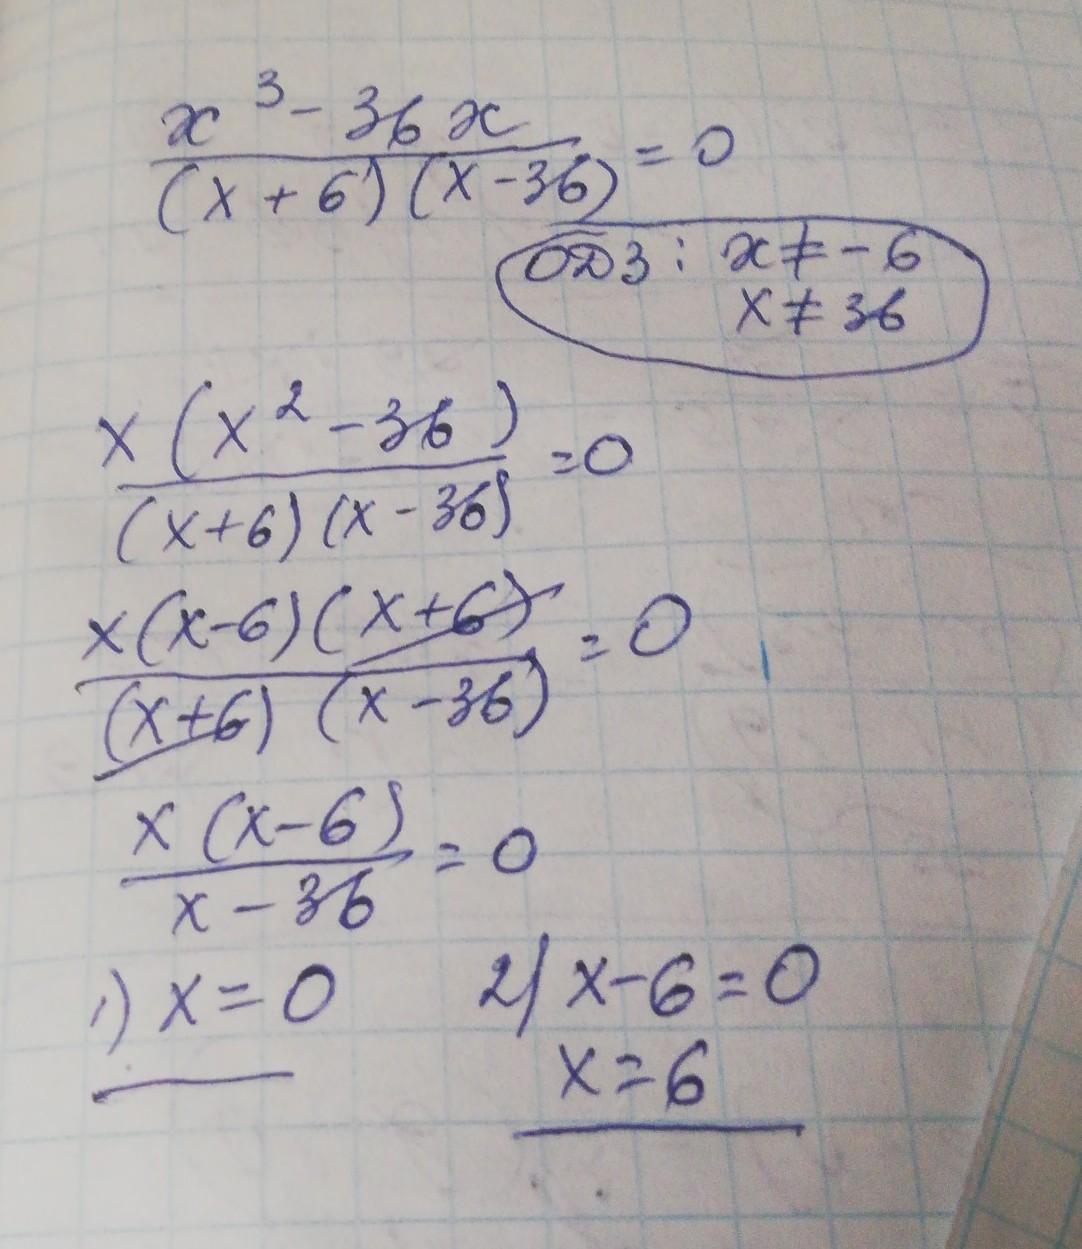 x³ - 36x / (x + 6)(x - 36) = 0
ОДЗ: x ≠ - 6
x ≠ 36
x(x² - 36) / (x+6)(x - 36) = 0
x(x-6)(x+6) / (x+6)(x - 36) = 0
x(x-6) / x - 36 = 0
1) x = 0 2) x-6 = 0
x = 6